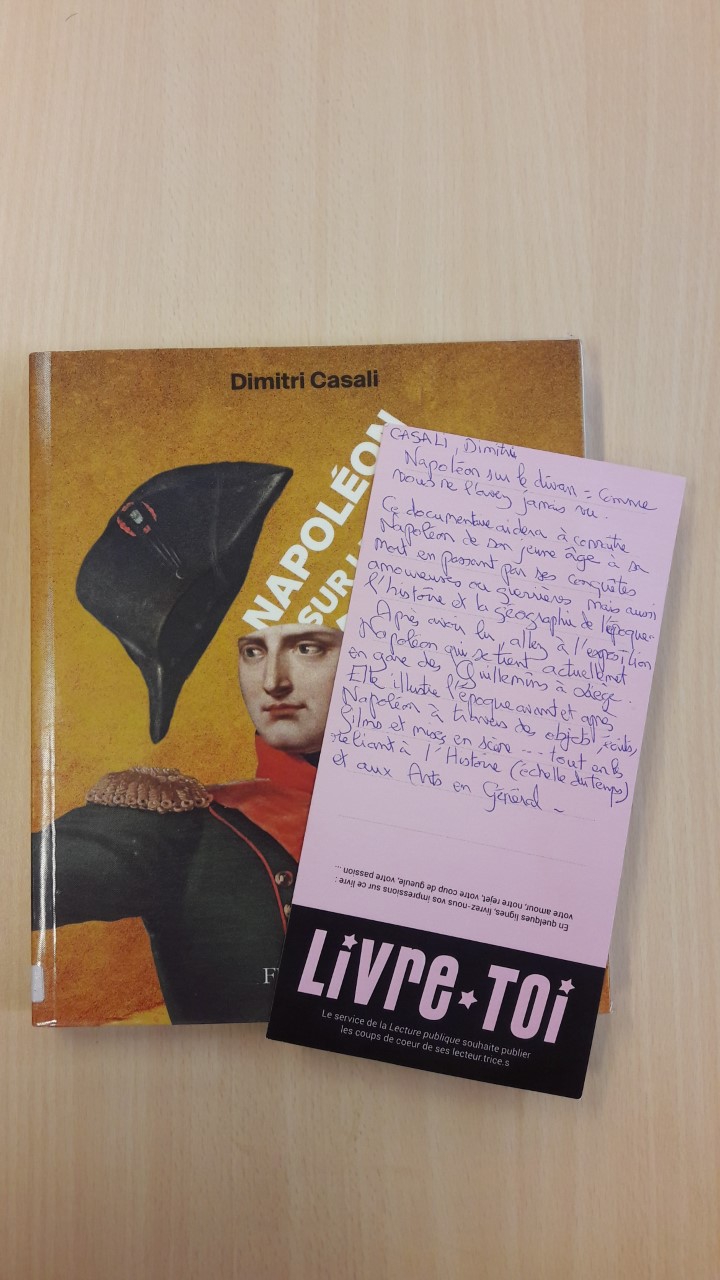 Dimitri Casali
NAPOLÉON
SUR L
F
CASALI, Dimitri
Napoléon sur le divan = Comme
vous ne l'avez jamais vu.
Ce documentaire aidera à connaître
Napoléon de son jeune âge à sa
mort en passant par ses conquêtes
amoureuses ou guerrières mais aussi
l'histoire et la géographie de l'époque.
Après avoir lu, allez à l'exposition
Napoléon qui se tient actuellement
en gare des Guillemins à Liège.
Elle illustre l'époque avant et après
Napoléon à travers des objets, écrits,
films et mises en scène ... tout en les
reliant à l'Histoire (échelle du temps)
et aux Arts en Général -
En quelques lignes, livrez-nous vos impressions sur ce livre :
votre amour, notre rejet, votre coup de gueule, votre passion ...
LivRe★Toi
Le service de la Lecture publique souhaite publier
les coups de coeur de ses lecteur.trice.s